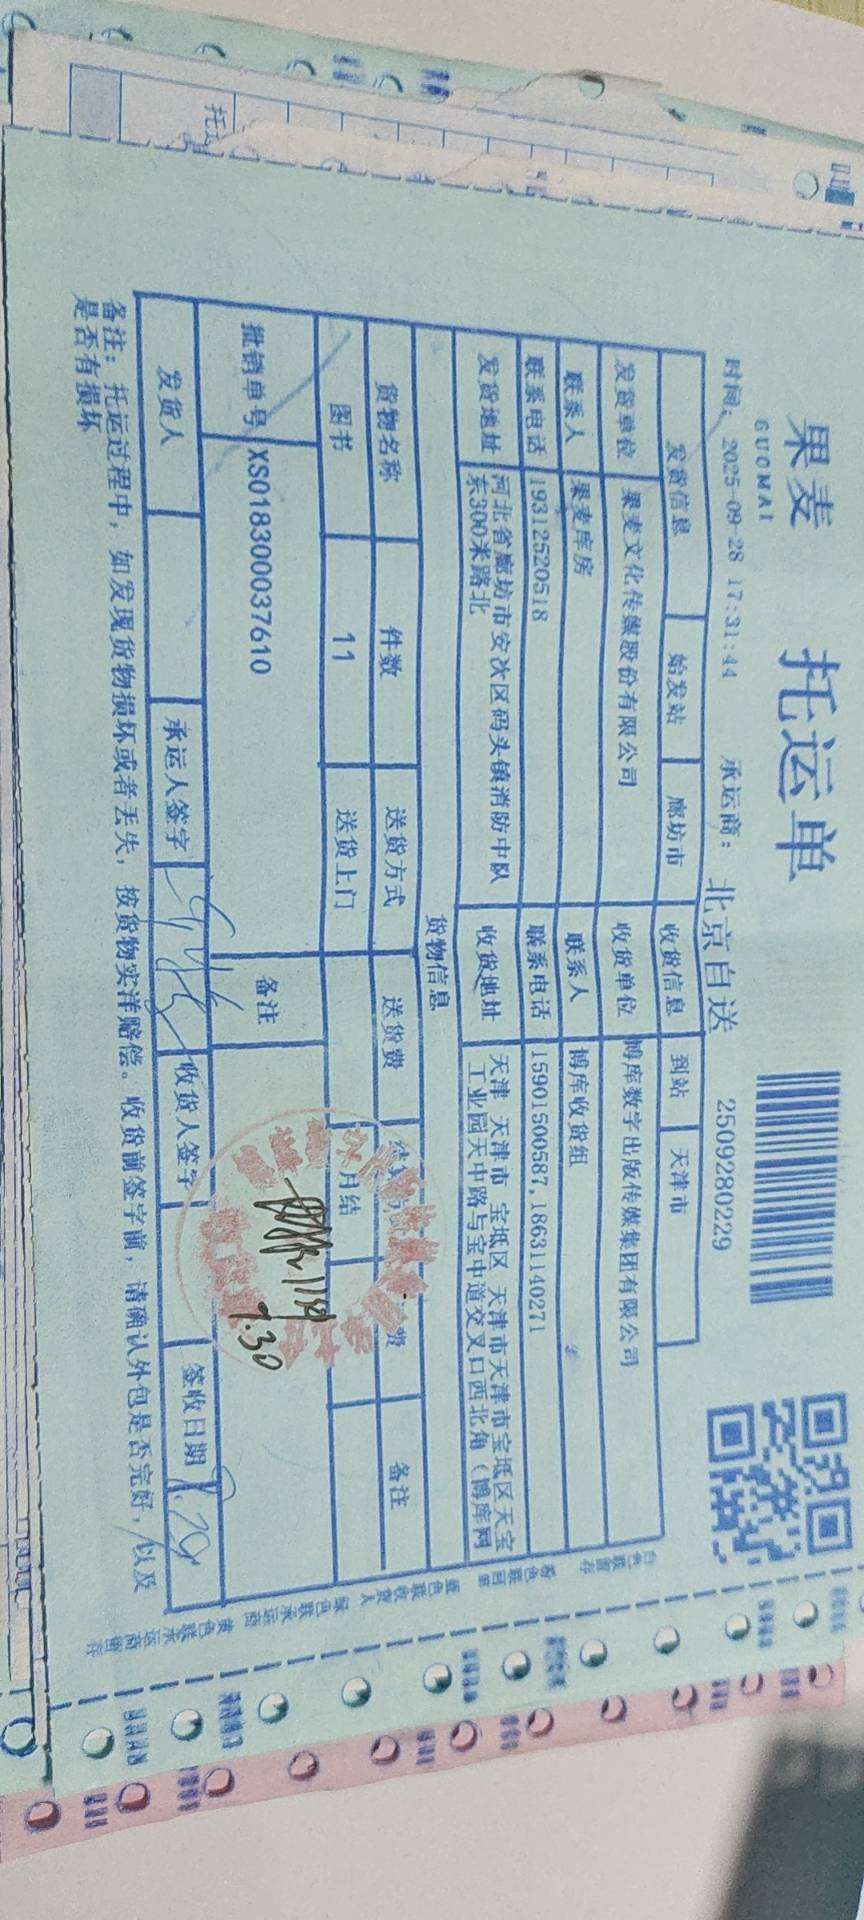 果麦
GUOMAI
托运单
时间: 2025-09-28 17:31:44 承运商: 北京自送 2509280229
发货信息 始发站 廊坊市 收货信息 到站 天津市
发货单位 果麦文化传媒股份有限公司 收货单位 博库数字出版传媒集团有限公司
联系人 果麦库房 联系人 博库收货组
联系电话 19312520518 联系电话 15901500587,18631140271
发货地址 河北省廊坊市安次区码头镇消防中队 收货地址 天津 天津市 宝坻区 天津市天津市宝坻区天宝
东300米路北 工业园天中路与宝中道交叉口西北角(博库网
货物信息
货物名称 件数 送货方式 送货费 费 备注
图书 11 送货上门 月结
批销单号 XS018300037610 备注
9.30
发货人 承运人签字 收货人签字 签收日期
备注: 托运过程中, 如发现货物损坏或者丢失, 按货物实洋赔偿。收货前签字前, 请确认外包是否完好, 以及
是否有损坏
白色联留存
粉色联回单
蓝色联收货人
绿色联承运商
黄色联承运商留存
托运